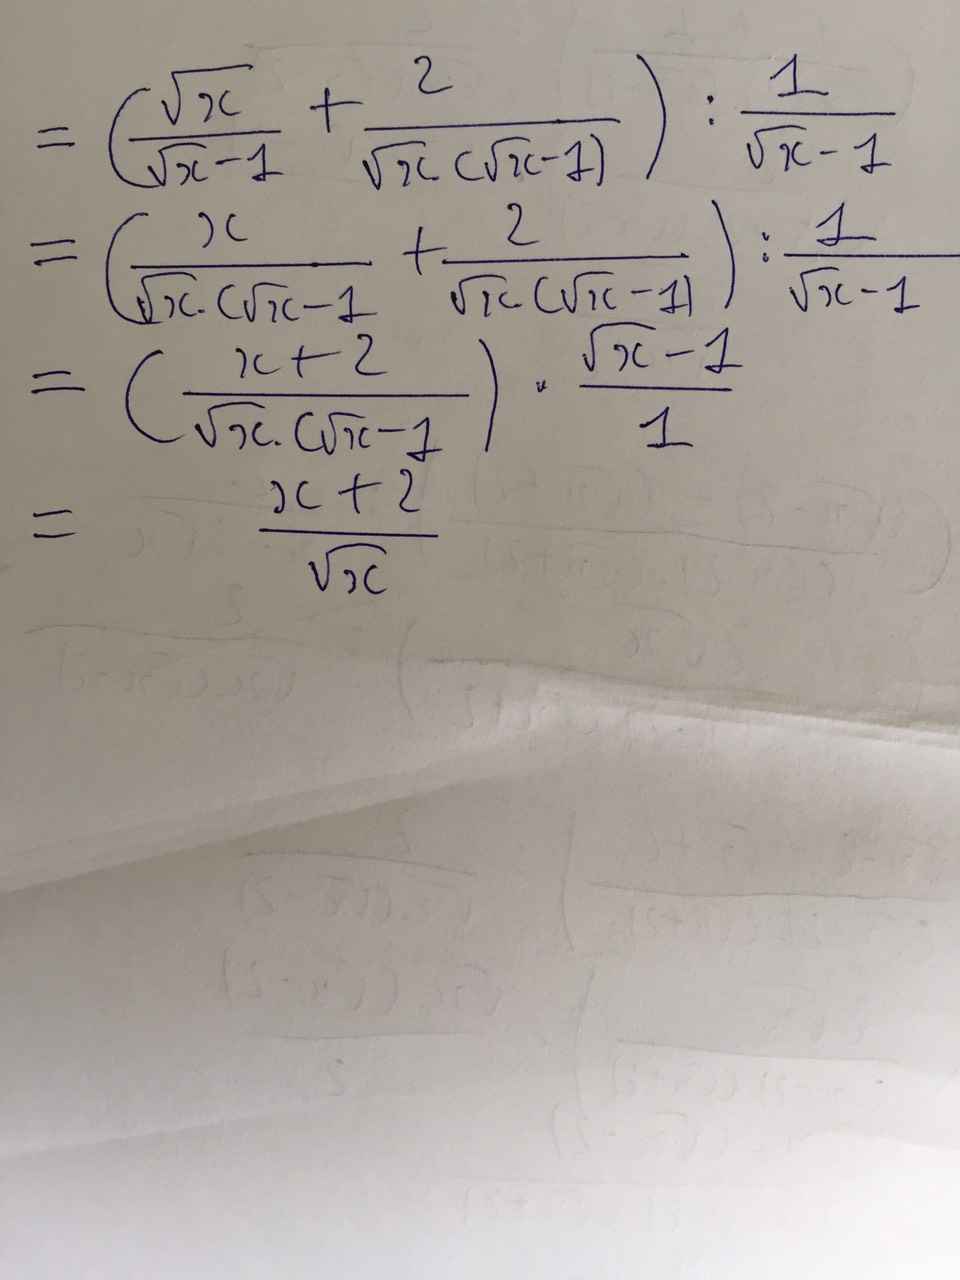 = (√x/(√x-1) + 2/(√x(√x-1))) : 1/(√x-1)
= (x/(√x.(√x-1) + 2/(√x.(√x-1))) : 1/(√x-1)
= ((x+2)/(√x.(√x-1)) . (√x-1)/1
= (x+2)/√x